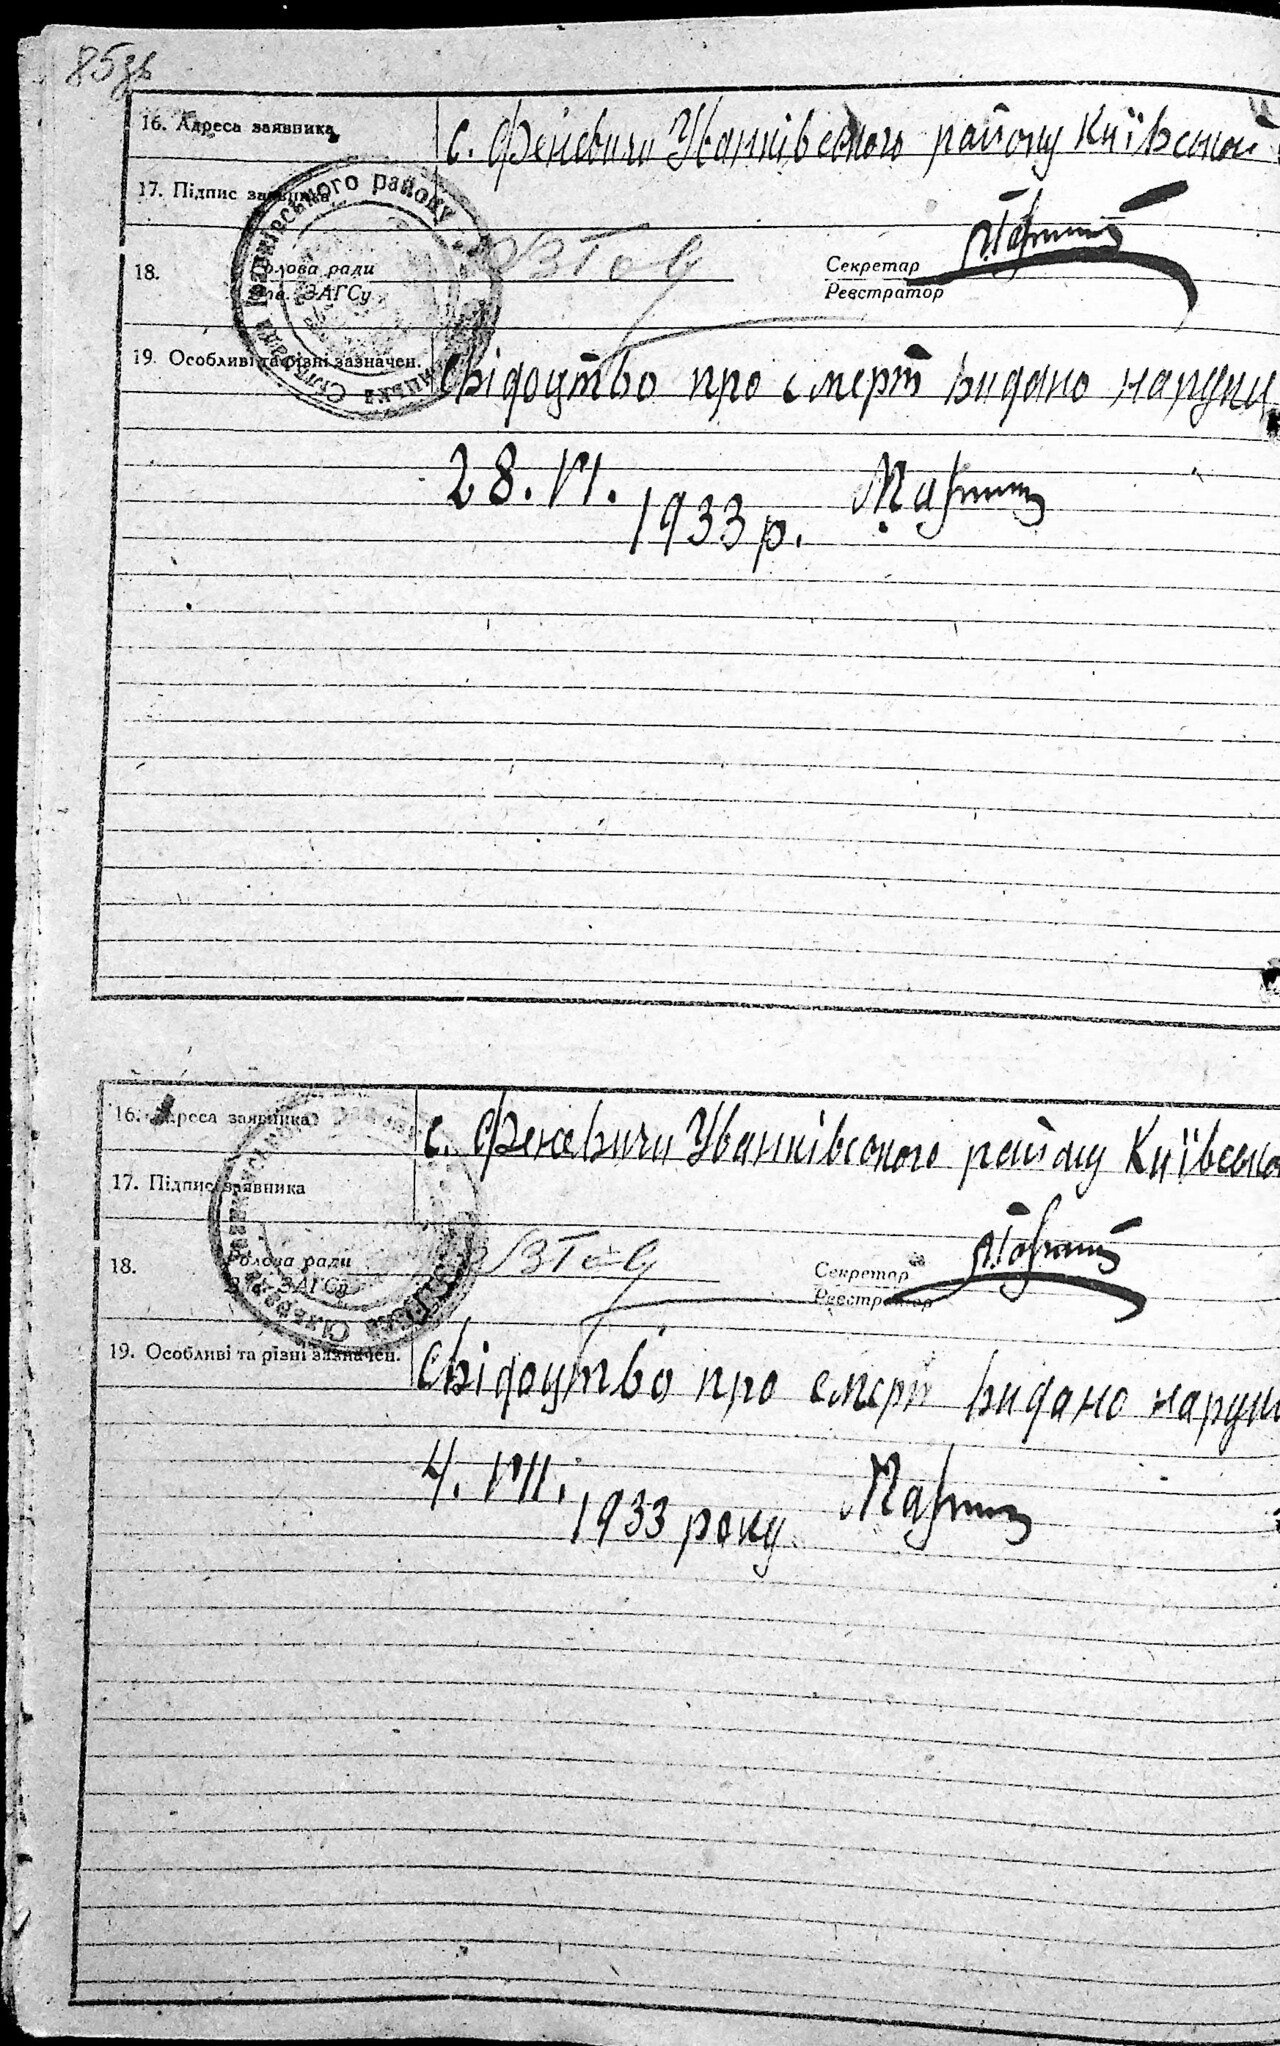 85зв
16. Адреса заявника с. Феневичи Уванківського району Київської
17. Підпис заявника
18. Голова ради Зав. ЗАГСу Секретар
Реєстратор
19. Особливі та різні зазначен. Свідоутво про смерт видано наруки
28. VI. 1933 р.
16. Адреса заявника с. Феневичи Уванківського району Київсько
17. Підпис заявника
18. Голова ради Зав. ЗАГСу Секретар
Реєстратор
19. Особливі та різні зазначен. Свідоутво про смерт видано наруки
4. VII. 1933 року